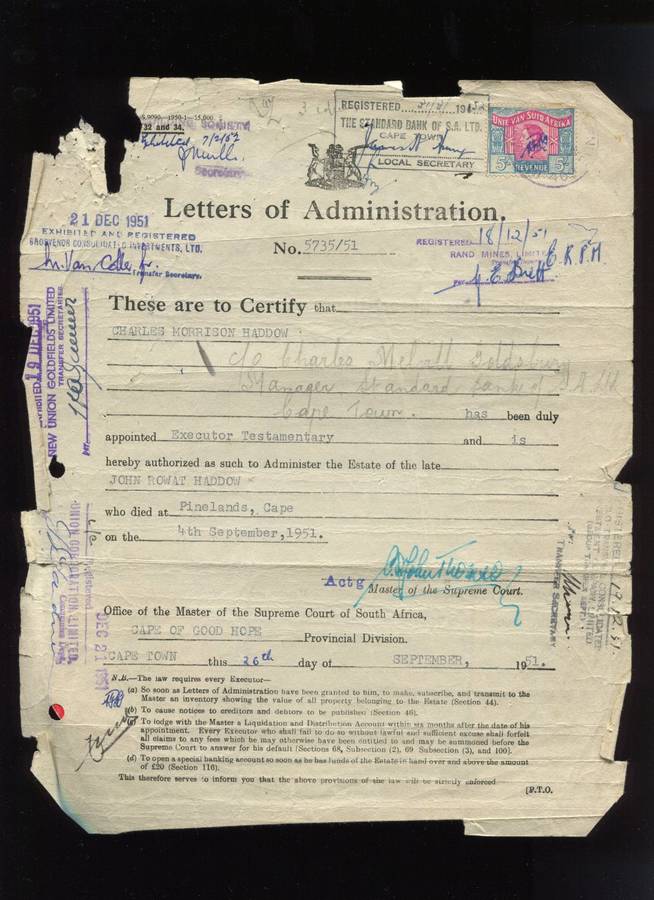 S.9090—1950-1—15,000
32 and 34.
Exhibited 7/2/52
Secretary
REGISTERED
THE STANDARD BANK OF S.A. LTD.
CAPE TOWN
LOCAL SECRETARY
UNIE VAN SUID AFRIKA
5/- 5/-
REVENUE
Letters of Administration.
21 DEC 1951
EXHIBITED AND REGISTERED
GROSVENOR CONSOLIDATED INVESTMENTS, LTD.
Transfer Secretary.
No. 5735/51
REGISTERED 18/12/51
RAND MINES, LIMITED
These are to Certify that
CHARLES MORRISON HADDOW
c/o Charles Melvill Goldsbury
Manager Standard Bank of S.A. Ltd
Cape Town. has been duly
appointed Executor Testamentary and is
hereby authorized as such to Administer the Estate of the late
JOHN ROWAT HADDOW
who died at Pinelands, Cape
on the 4th September, 1951.
Actg Master of the Supreme Court.
Office of the Master of the Supreme Court of South Africa,
CAPE OF GOOD HOPE Provincial Division.
CAPE TOWN this 26th day of SEPTEMBER, 1951.
N.B.—The law requires every Executor—
(a) So soon as Letters of Administration have been granted to him, to make, subscribe, and transmit to the
Master an inventory showing the value of all property belonging to the Estate (Section 44).
(b) To cause notices to creditors and debtors to be published (Section 46).
(c) To lodge with the Master a Liquidation and Distribution Account within six months after the date of his
appointment. Every Executor who shall fail to do so without lawful and sufficient excuse shall forfeit
all claims to any fees which he may otherwise have been entitled to and may be summoned before the
Supreme Court to answer for his default (Sections 68, Subsection (2), 69 Subsection (3), and 100).
(d) To open a special banking account so soon as he has funds of the Estate in hand over and above the amount
of £20 (Section 116).
This therefore serves to inform you that the above provisions of the law will be strictly enforced
[P.T.O.
EXHIBITED 19 DEC 1951
NEW UNION GOLDFIELDS LIMITED
TRANSFER SECRETARIES
PER
Registered
UNION CORPORATION LIMITED.
DEC 21 1951
REGISTERED 17.12.51
TRANSFER SECRETARY